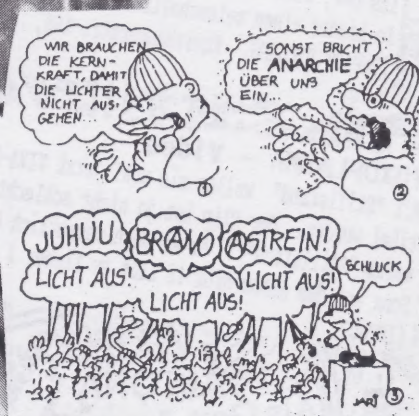 WIR BRAUCHEN
DIE KERN-
KRAFT, DAMIT
DIE LICHTER
NICHT AUS-
GEHEN...
1
SONST BRICHT
DIE ANARCHIE
ÜBER UNS
EIN...
2
JUHUU
BRAVO
ASTREIN!
LICHT AUS!
LICHT AUS!
LICHT AUS!
SCHLUCK
JARI
3